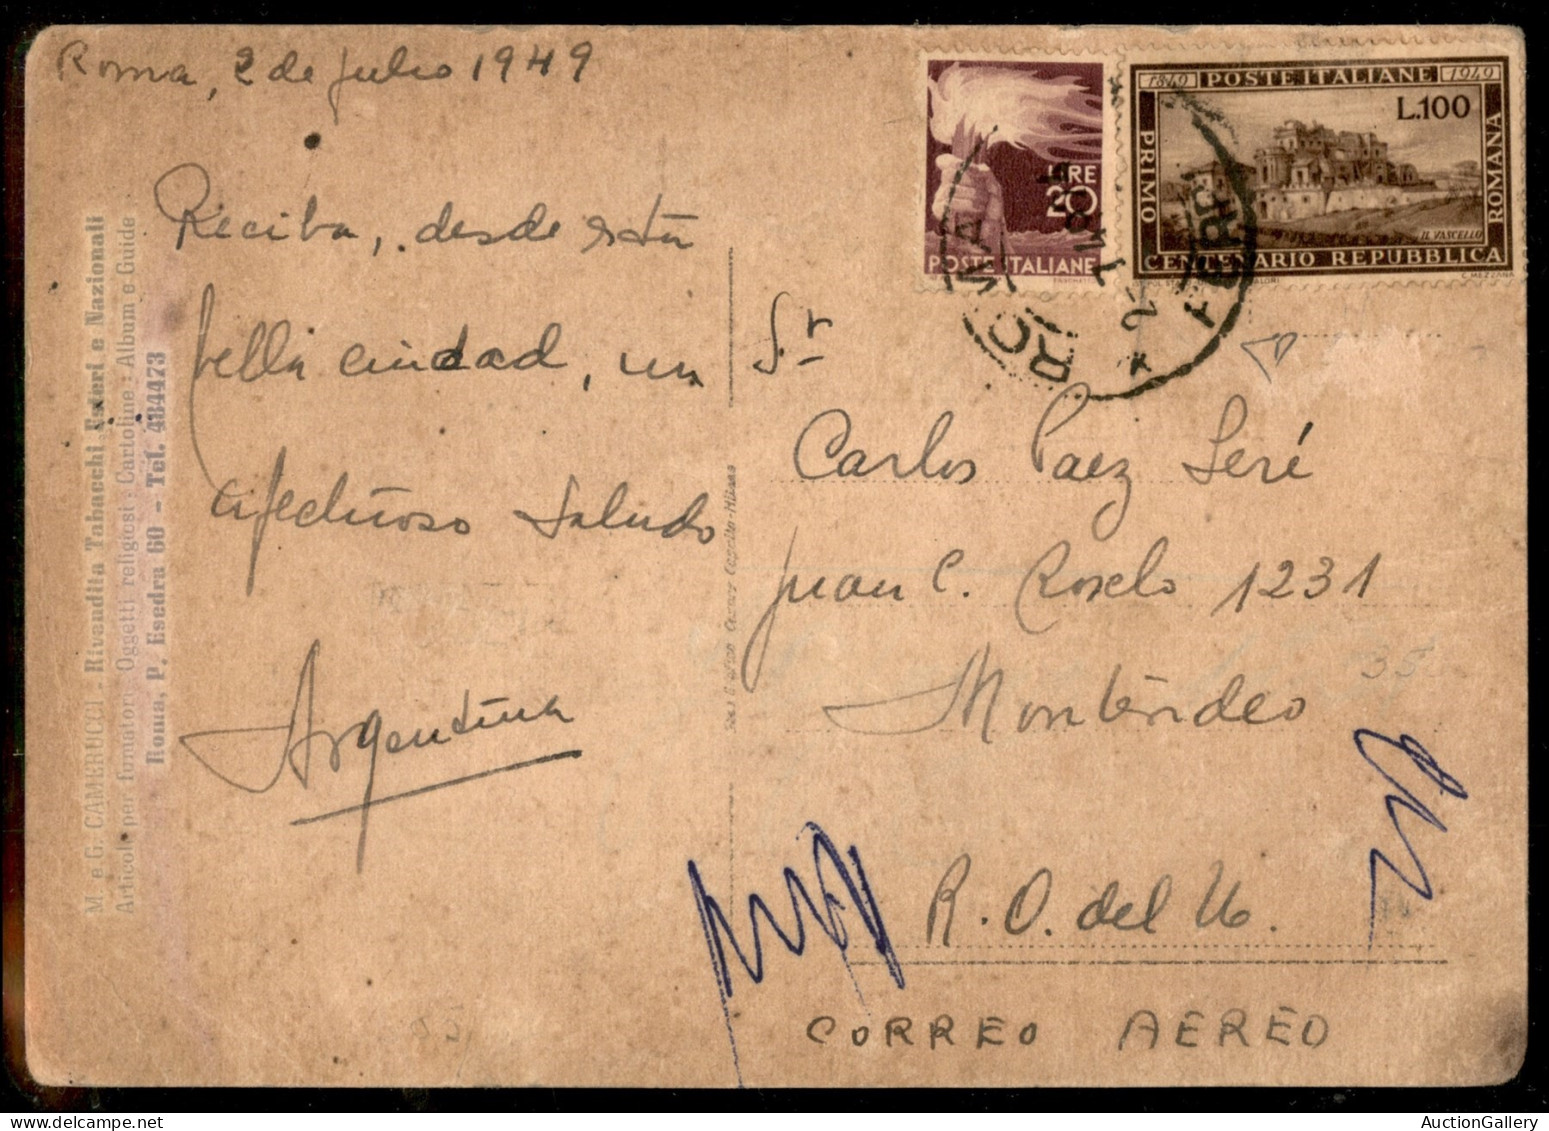 Roma, 2 de Julio 1949
Reciba, desde esta
bella ciudad, un
afectuoso Saludo
Argentina
M. e G. CAMERUCCI - Rivendita Tabacchi Esteri e Nazionali
Articoli per fumatori - Oggetti religiosi - Cartoline: Album e Guide
Roma, P. Esedra 60 - Tel. 484473
LIRE
20
POSTE ITALIANE
1849 POSTE ITALIANE 1949
L.100
PRIMO
ROMANA
IL VASCELLO
CENTENARIO REPUBBLICA
C. MEZZANA
ROMA
FERR
Sr
Carlos Paez Seré
Juan C. Roselo 1231
Montevideo
R. O. del U.
CORREO AEREO
AuctionGallery